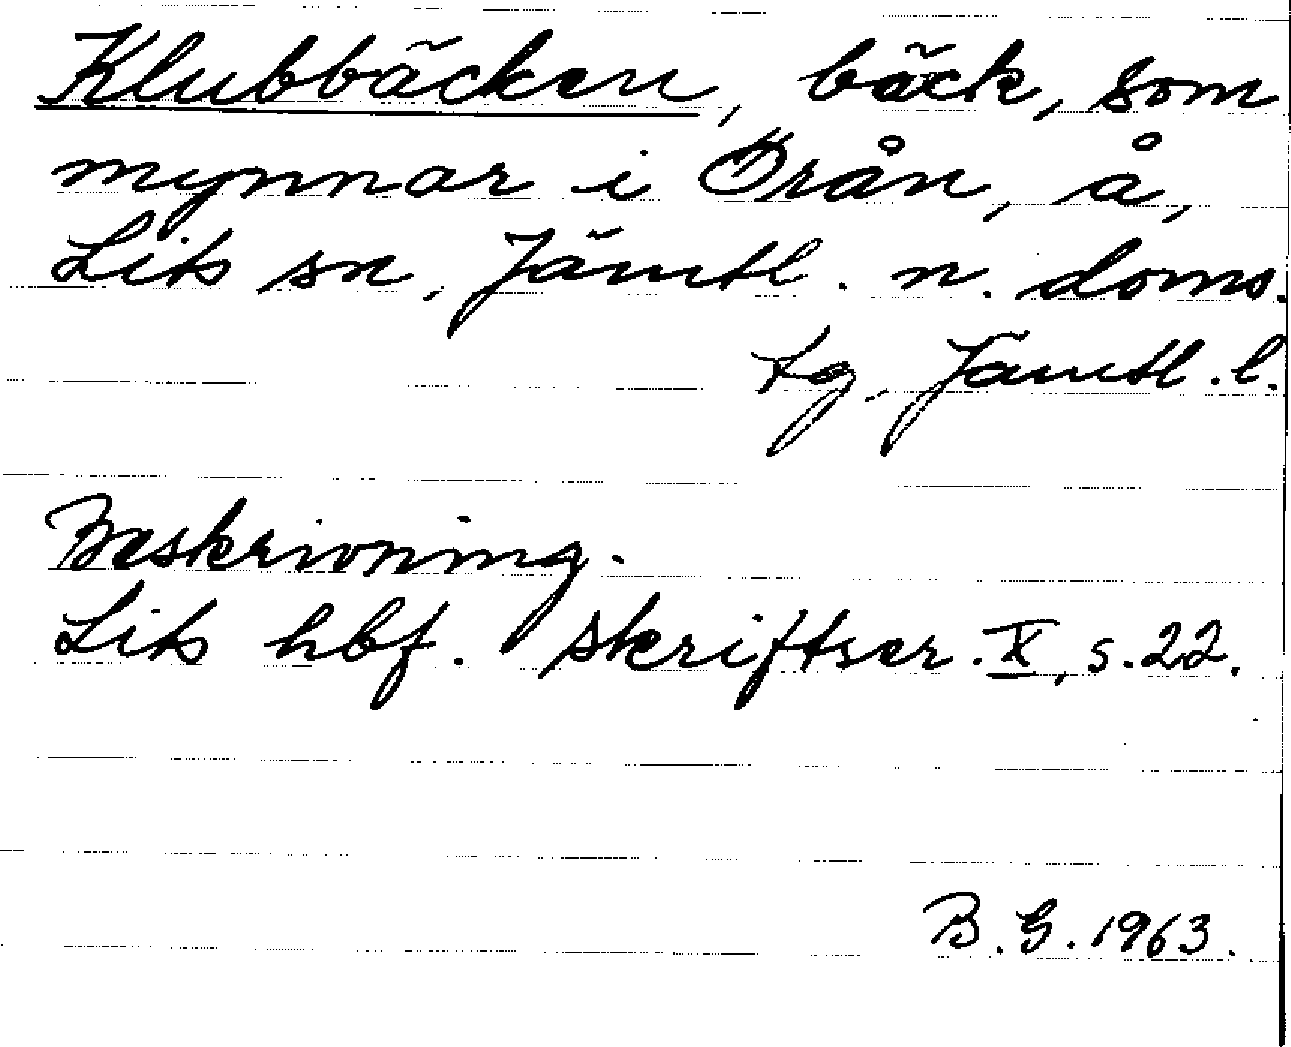 Klubbäcken, bäck, som
mynnar i Örån, å,
Lits sn, Jämtl. n. doms.
tg, Jämtl. l.
Beskrivning.
Lits hbf. skriftser. X, s. 22.
B. G. 1963.